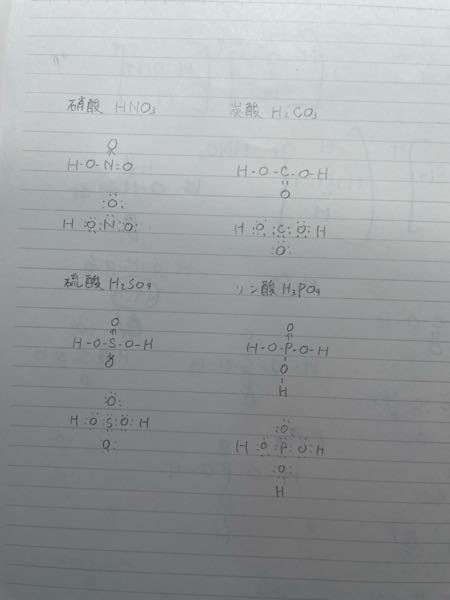 硝酸 HNO₃
O
↑
H-O-N=O
:Ö:
H :Ö:N::Ö:
炭酸 H₂CO₃
H-O-C-O-H
||
O
H :Ö:C:Ö: H
:O:
硫酸 H₂SO₄
O
↑
H-O-S-O-H
↓
O
:Ö:
H :Ö:S:Ö: H
:O:
リン酸 H₃PO₄
O
↑
H-O-P-O-H
|
O
|
H
:Ö:
H :Ö:P:Ö: H
:O:
H